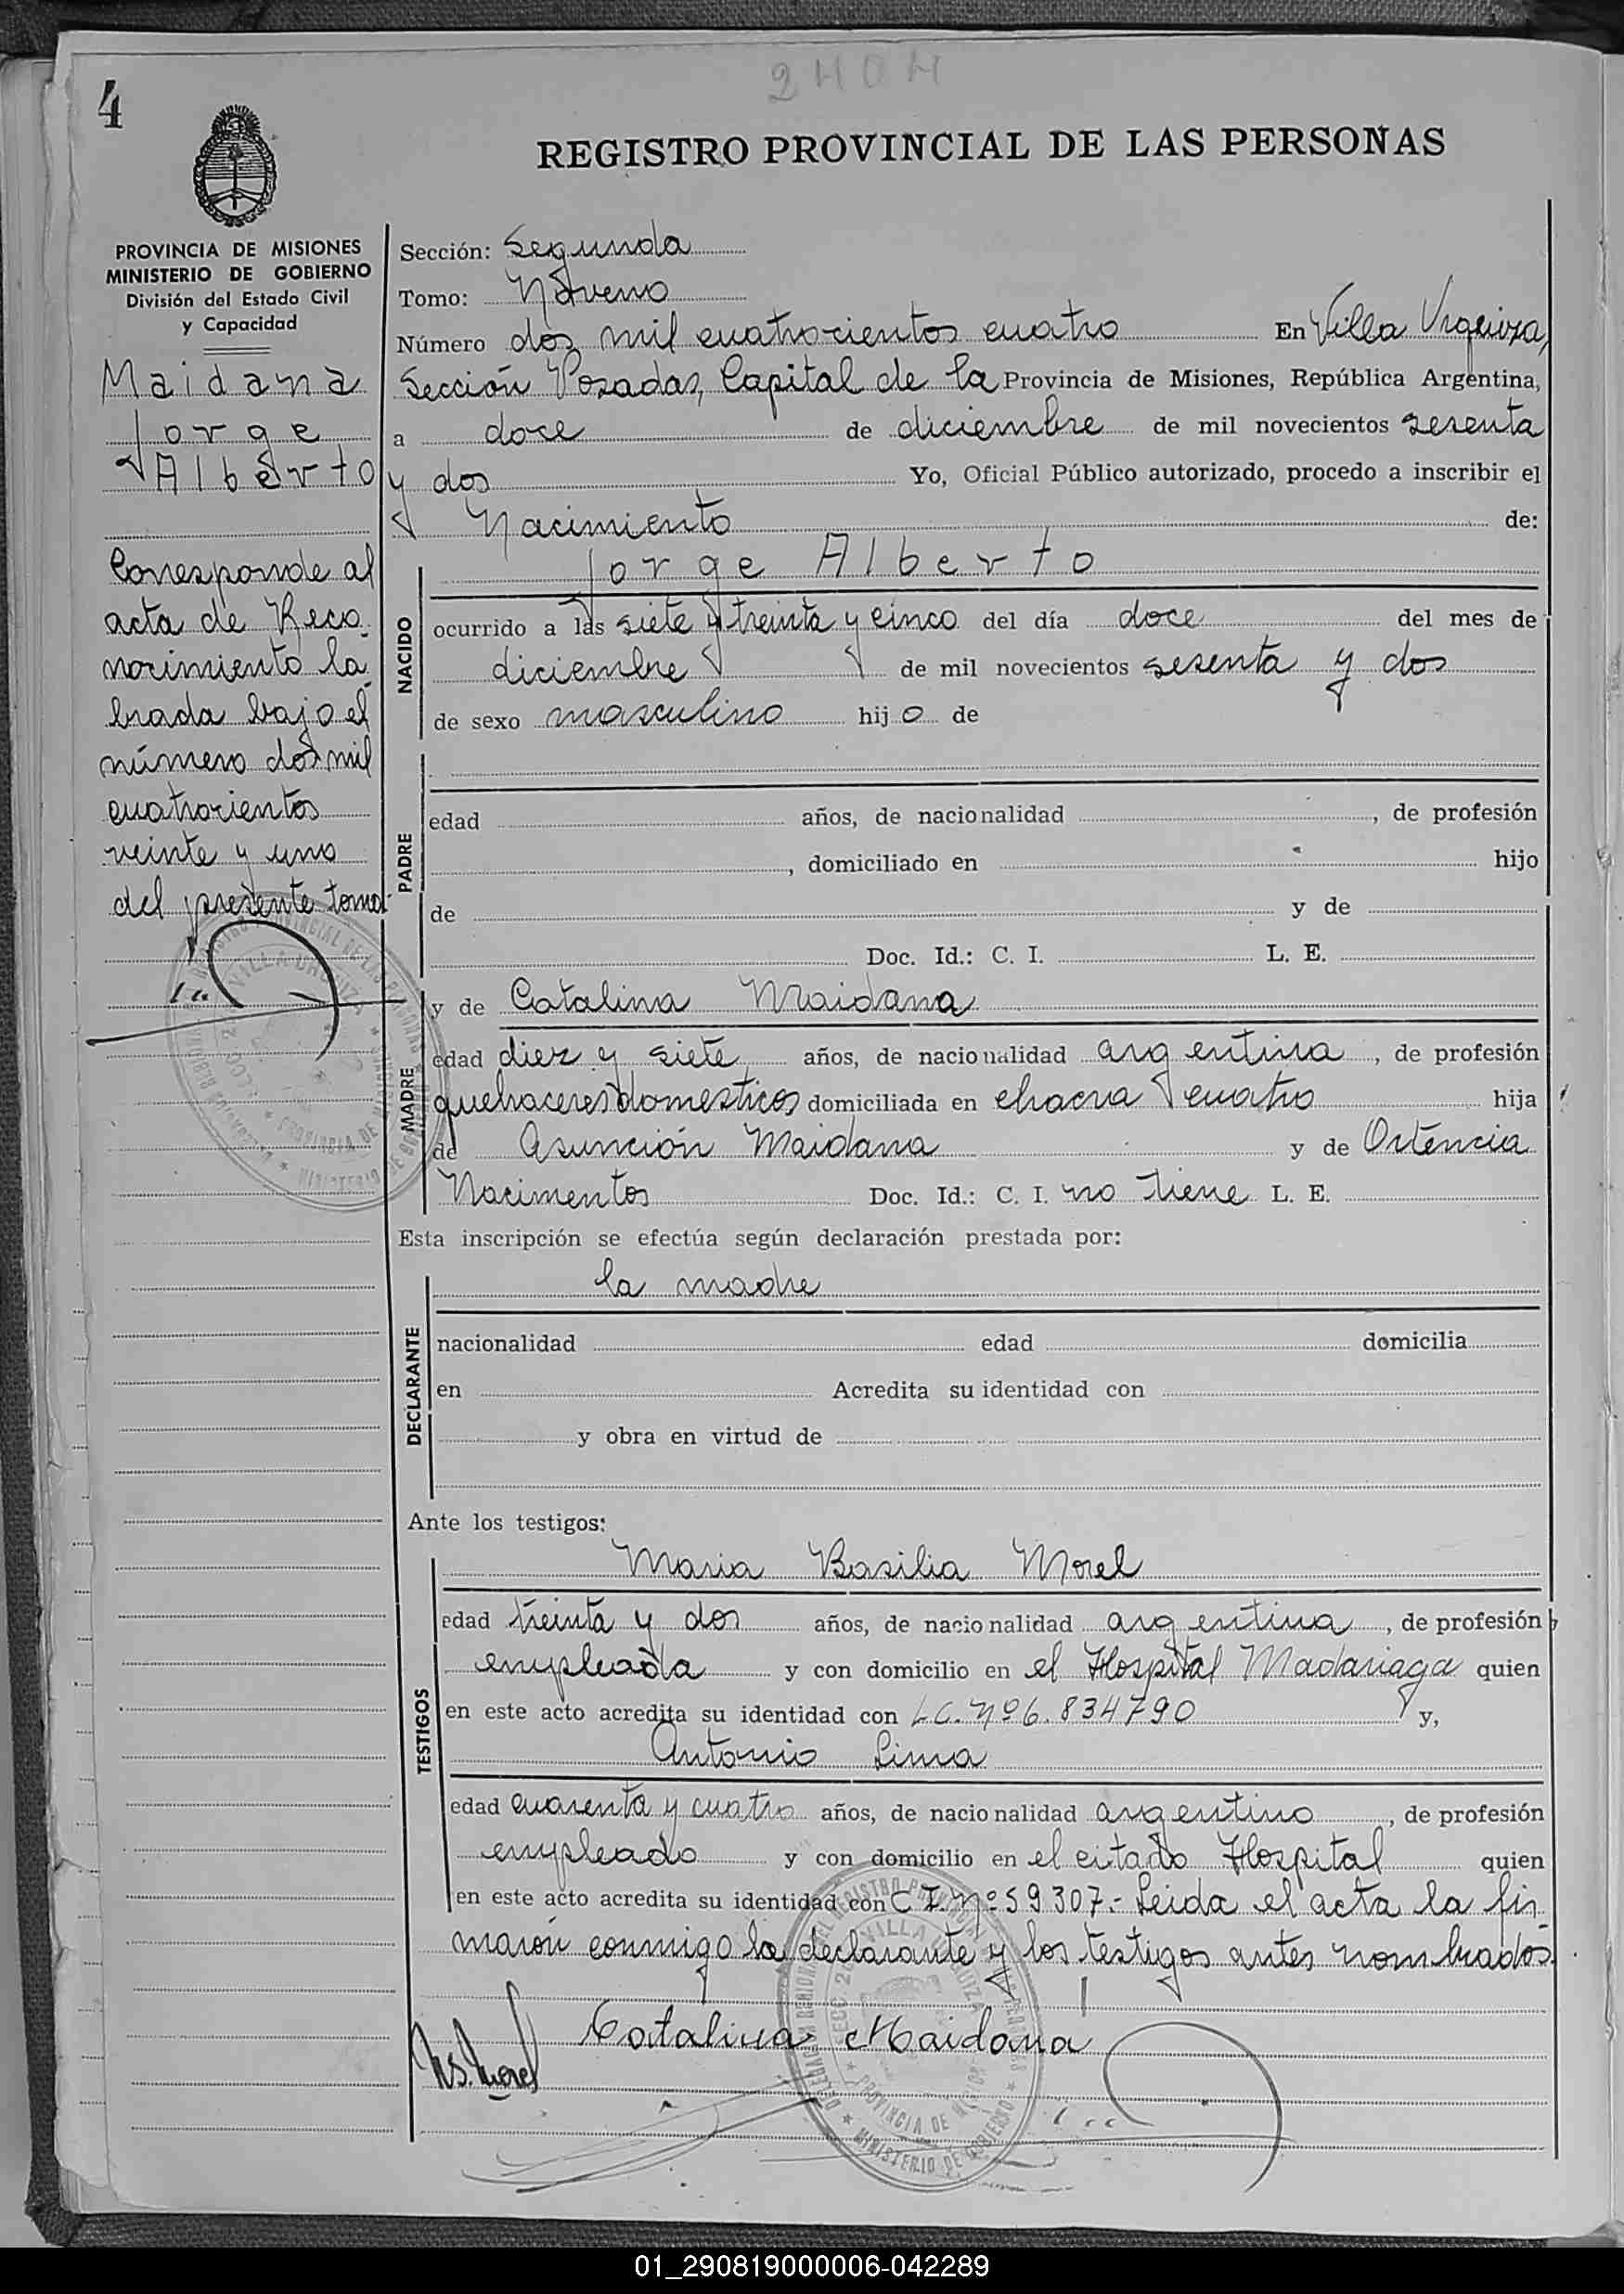 2404
4
REGISTRO PROVINCIAL DE LAS PERSONAS
PROVINCIA DE MISIONES
MINISTERIO DE GOBIERNO
División del Estado Civil
y Capacidad
Maidana
Jorge
Alberto
Corresponde al
acta de Reco-
nocimiento la-
brada bajo el
número dos mil
cuatrocientos
veinte y uno
del presente tomo.-
Sección: Segunda
Tomo: Noveno
Número dos mil cuatrocientos cuatro En Villa Urquiza,
Sección Posadas, Capital de la Provincia de Misiones, República Argentina,
a doce de diciembre de mil novecientos sesenta
y dos Yo, Oficial Público autorizado, procedo a inscribir el
Nacimiento de:
NACIDO
Jorge Alberto
ocurrido a las siete y treinta y cinco del día doce del mes de
diciembre de mil novecientos sesenta y dos
de sexo masculino hijo de
PADRE
edad años, de nacionalidad , de profesión
, domiciliado en hijo
de y de
Doc. Id.: C. I. L. E.
MADRE
y de Catalina Maidana
edad diez y siete años, de nacionalidad argentina, de profesión
quehaceres domesticos domiciliada en chacra cuatro hija
de Asunción Maidana y de Ortencia
Nacimentos Doc. Id.: C. I. no tiene L. E.
Esta inscripción se efectúa según declaración prestada por:
DECLARANTE
la madre
nacionalidad edad domicilia
en Acredita su identidad con
y obra en virtud de
Ante los testigos:
TESTIGOS
Maria Basilia Morel
edad treinta y dos años, de nacionalidad argentina, de profesión
empleada y con domicilio en el Hospital Madariaga quien
en este acto acredita su identidad con L.C. Nº 6.834790 y,
Antonio Lima
edad cuarenta y cuatro años, de nacionalidad argentino, de profesión
empleado y con domicilio en el citado Hospital quien
en este acto acredita su identidad con C I. Nº 59307.- Leida el acta la fir-
maron conmigo la declarante y los testigos antes nombrados.
Catalina Maidana
Morel
01_290819000006-042289